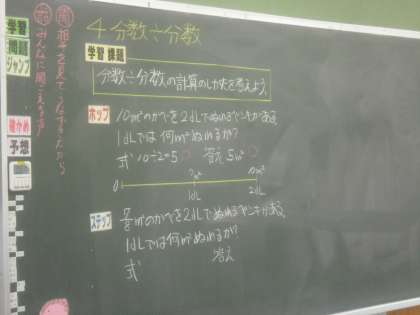 4 分数÷分数
学習課題
分数÷分数の計算のしかたを考えよう。
ホップ
10m²のかべを2dLでぬれるペンキがある
1dLでは何m²ぬれるか?
式 10÷2=5 答え 5m²
0 ?m² 10m²
1dL 2dL
ステップ
m²のかべを2dLでぬれるペンキがある
1dLでは何m²ぬれるか?
式 答え
学習
問題
ジャンプ
確かめ
予想
みんなに聞こえる声